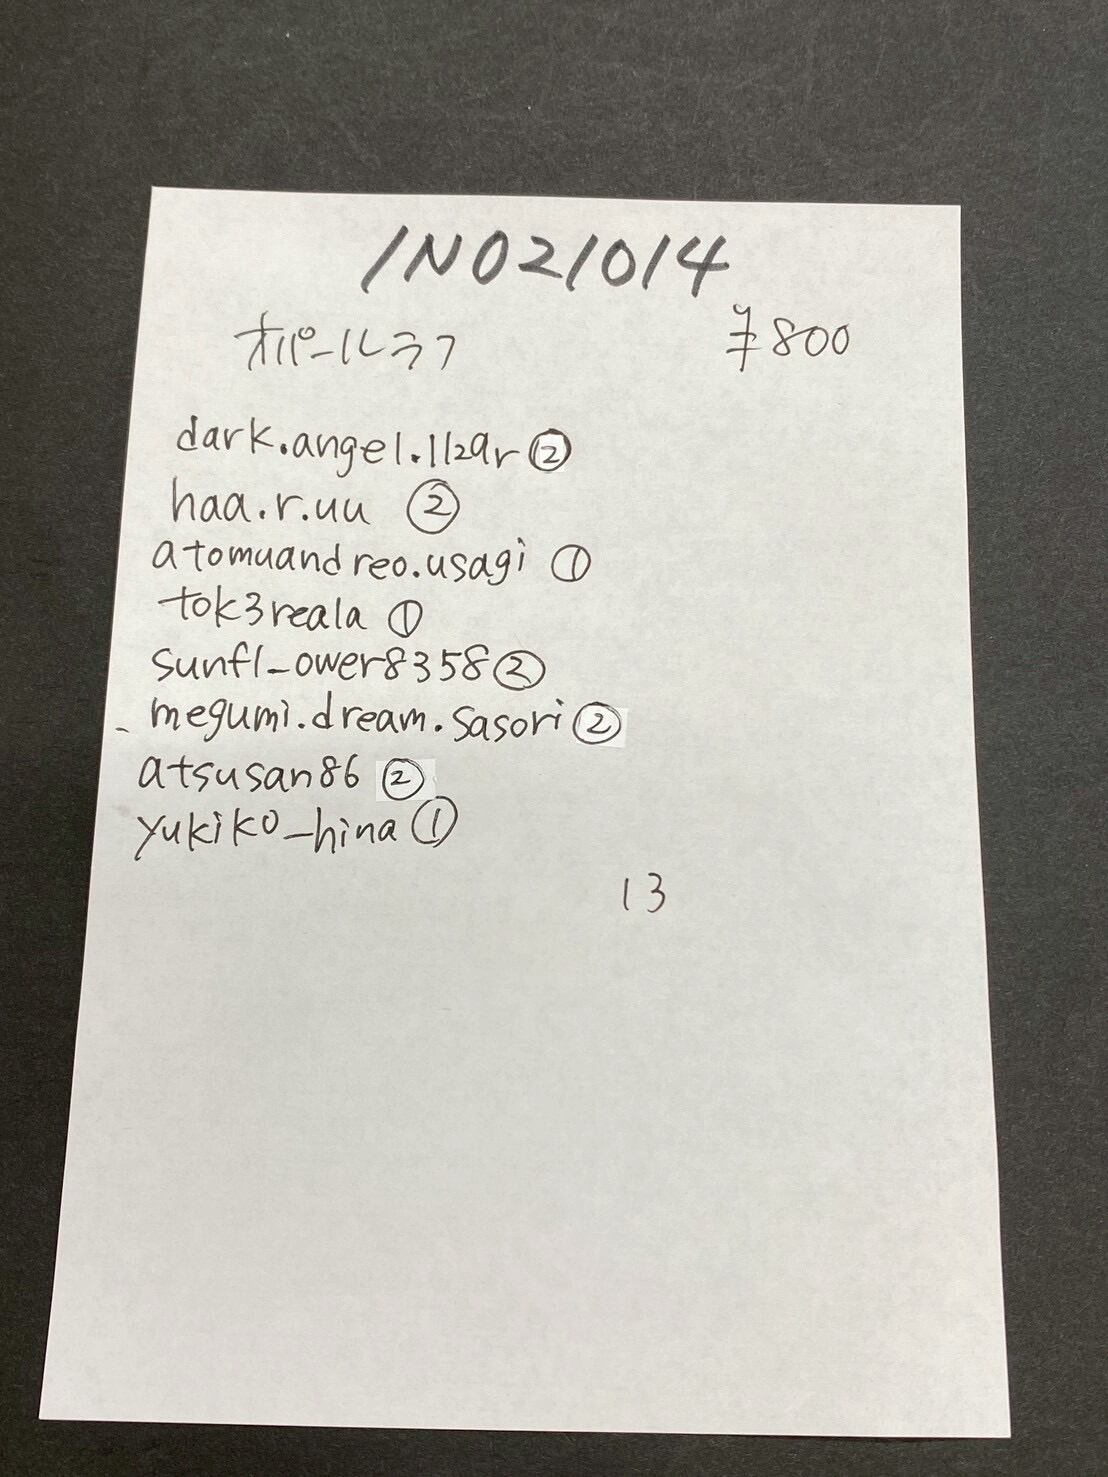 INO21014
オパールラフ ¥800
dark.angel.1129r②
haa.r.uu ②
atomuandreo.usagi ①
tok3reala ①
sunfl_ower8358②
megumi.dream.sasori②
atsusan86 ②
yukiko_hina ①
13